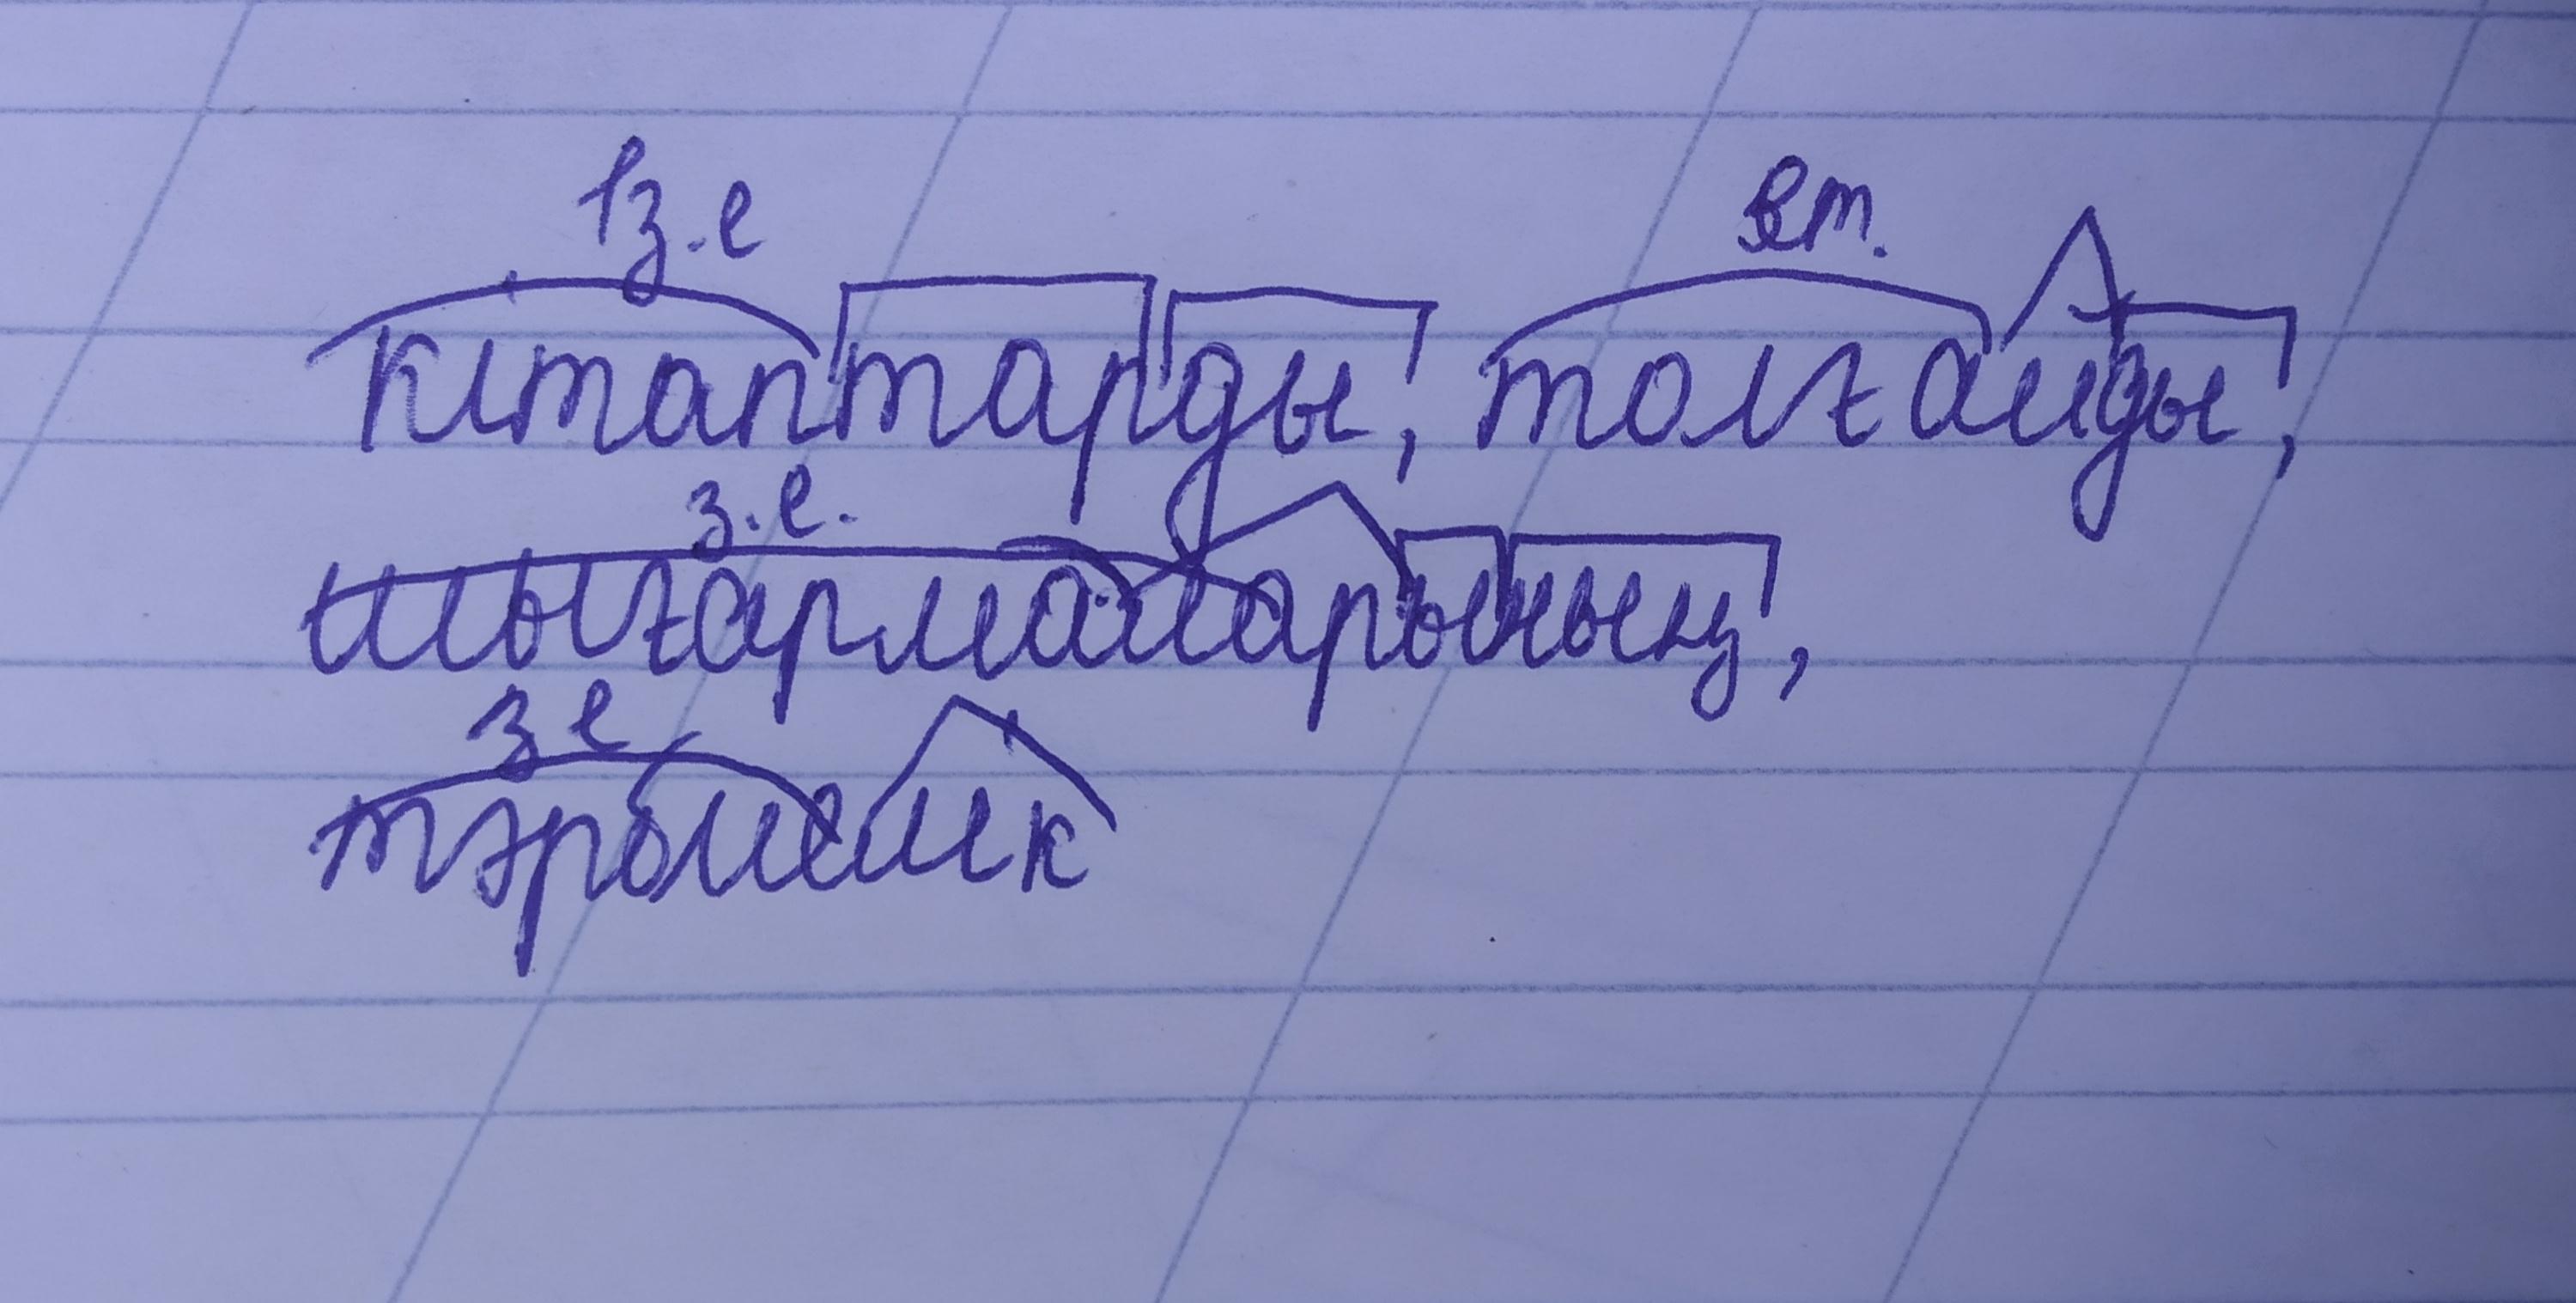 з.е ет.
кітаптарды, толғанды,
з.е.
шығармаларының,
з е
тәрбиелік